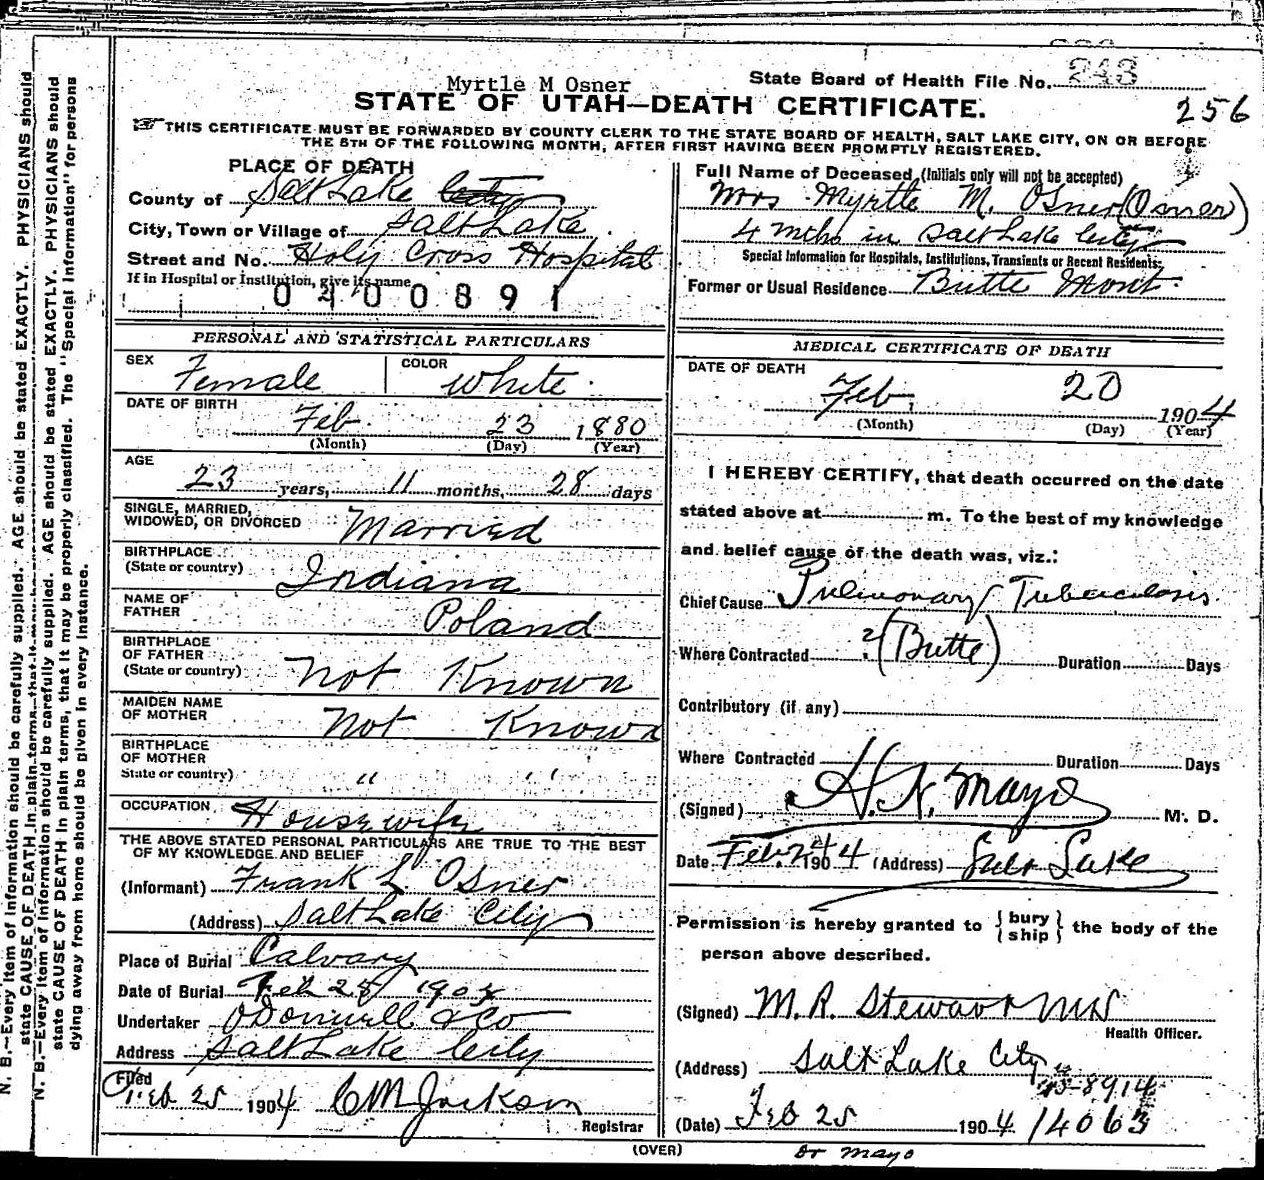 Myrtle M Osner
State Board of Health File No. 243
256
STATE OF UTAH—DEATH CERTIFICATE.
THIS CERTIFICATE MUST BE FORWARDED BY COUNTY CLERK TO THE STATE BOARD OF HEALTH, SALT LAKE CITY, ON OR BEFORE
THE 5TH OF THE FOLLOWING MONTH, AFTER FIRST HAVING BEEN PROMPTLY REGISTERED.
PLACE OF DEATH
County of Salt Lake City
City, Town or Village of Salt Lake
Street and No. Holy Cross Hospital
If in Hospital or Institution, give its name
0400891
Full Name of Deceased (Initials only will not be accepted)
Mrs Myrtle M. Osner (Osner)
4 mths in Salt Lake City
Special Information for Hospitals, Institutions, Transients or Recent Residents:
Former or Usual Residence Butte Mont.
PERSONAL AND STATISTICAL PARTICULARS
SEX Female COLOR White.
DATE OF BIRTH
Feb. 23 1880
(Month) (Day) (Year)
AGE
23 years, 11 months, 28 days
SINGLE, MARRIED,
WIDOWED, OR DIVORCED Married
BIRTHPLACE
(State or country) Indiana
NAME OF
FATHER Poland
BIRTHPLACE
OF FATHER
(State or country) Not Known
MAIDEN NAME
OF MOTHER Not Known
BIRTHPLACE
OF MOTHER
State or country) " "
OCCUPATION Housewife
THE ABOVE STATED PERSONAL PARTICULARS ARE TRUE TO THE BEST
OF MY KNOWLEDGE AND BELIEF
(Informant) Frank L Osner
(Address) Salt Lake City
Place of Burial Calvary
Date of Burial Feb 25 1904
Undertaker O'Donnell & Co
Address Salt Lake City
Filed
Feb 25 1904 C M Jackson
Registrar
MEDICAL CERTIFICATE OF DEATH
DATE OF DEATH
Feb. 20 1904
(Month) (Day) (Year)
I HEREBY CERTIFY, that death occurred on the date
stated above at m. To the best of my knowledge
and belief cause of the death was, viz.:
Chief Cause Pulmonary Tuberculosis
Where Contracted ? (Butte) Duration Days
Contributory (if any)
Where Contracted Duration Days
(Signed) H. N. Mayo M. D.
Date Feb 24 1904 (Address) Salt Lake
Permission is hereby granted to {bury
ship} the body of the
person above described.
(Signed) M. R. Stewart MD
Health Officer.
(Address) Salt Lake City
15-8914
(Date) Feb 25 1904. 14063
(OVER)
Dr Mayo
N. B.—Every item of information should be carefully supplied. AGE should be stated EXACTLY. PHYSICIANS should
state CAUSE OF DEATH in plain terms, that it may be
N. B.—Every item of information should be carefully supplied. AGE should be stated EXACTLY. PHYSICIANS should
state CAUSE OF DEATH in plain terms, that it may be properly classified. The "Special Information" for persons
dying away from home should be given in every instance.